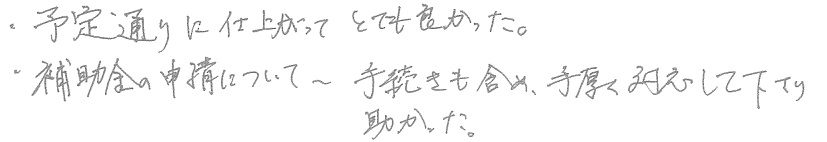 ・予定通りに仕上がって とても良かった。
・補助金の申請について〜 手続きも含め、手厚く対応して下さり
助かった。